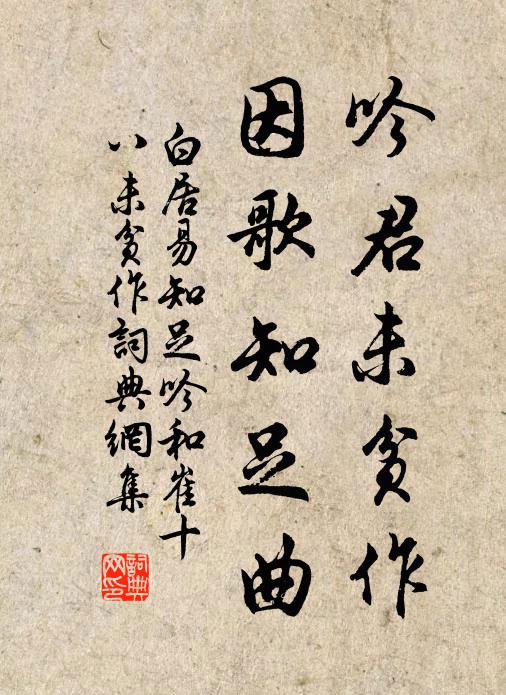 吟君未貧作
因歌知足曲
白居易知足吟和崔十
八未貧作詞典網集
詞典
网印